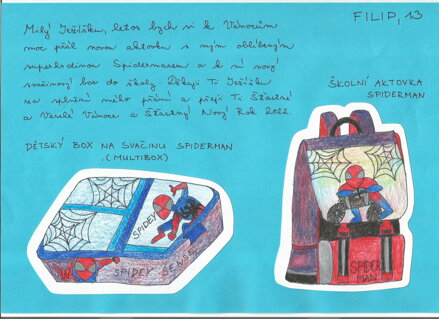 FILIP, 13
Milý Ježíšku, letos bych si k Vánocům
moc přál novou aktovku s mým oblíbeným
superhrdinou Spidermanem a k ní nový
svačinový box do školy. Děkuji Ti Ježíšku
za splnění mého přání a přeji Ti Šťastné
a Veselé Vánoce a Šťastný Nový Rok 2022.
ŠKOLNÍ AKTOVKA
SPIDERMAN
DĚTSKÝ BOX NA SVAČINU SPIDERMAN
(MULTIBOX)
SPIDEY
SPIDEY SENSE
SPIDER
MAN